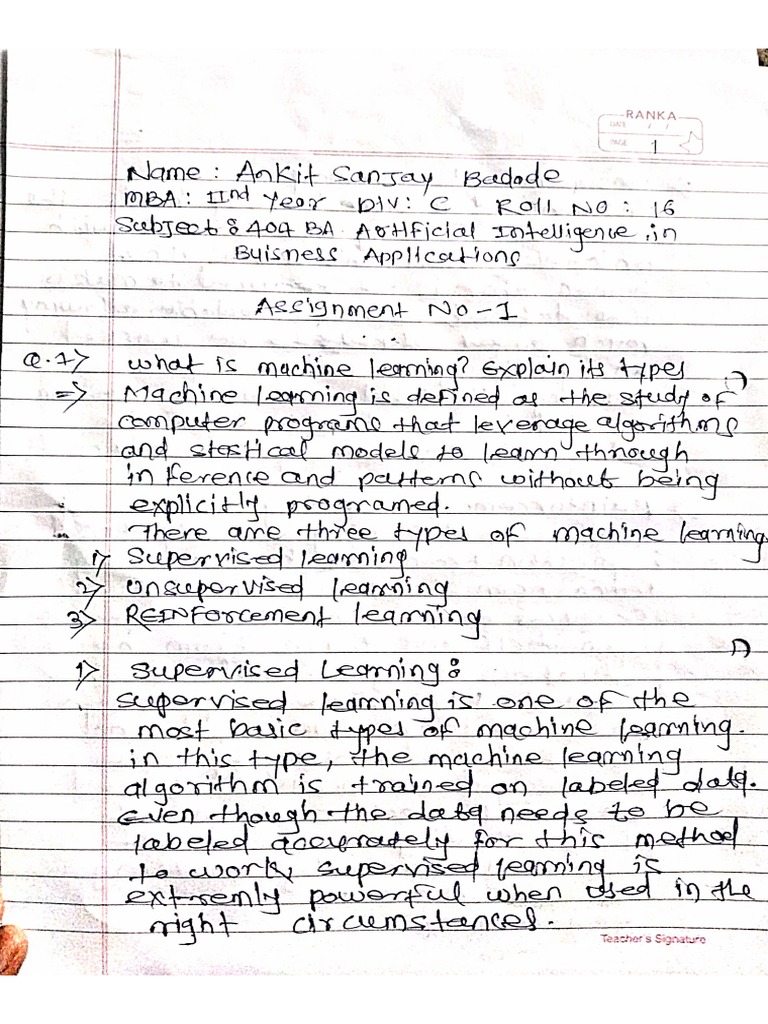 RANKA
DATE / /
PAGE 1
Name : Ankit Sanjay Badode
MBA : IInd Year Div : C Roll No : 16
Subject : 404 BA Artificial Intelligence in
Buisness Applications
Assignment No - 1
Q.1> What is machine learning? Explain its types
=> Machine learning is defined as the study of
computer programs that leverage algorithms
and stastical models to learn through
inference and patterns without being
explicitly programed.
There are three types of machine learning.
1> Supervised learning
2> Unsupervised learning
3> REINForcement learning
1> Supervised Learning :
Supervised learning is one of the
most basic types of machine learning.
in this type, the machine learning
algorithm is trained on labeled data.
Even though the data needs to be
labeled accurately for this method
to work, supervised learning is
extremly powerful when used in the
right circumstances.
Teacher's Signature